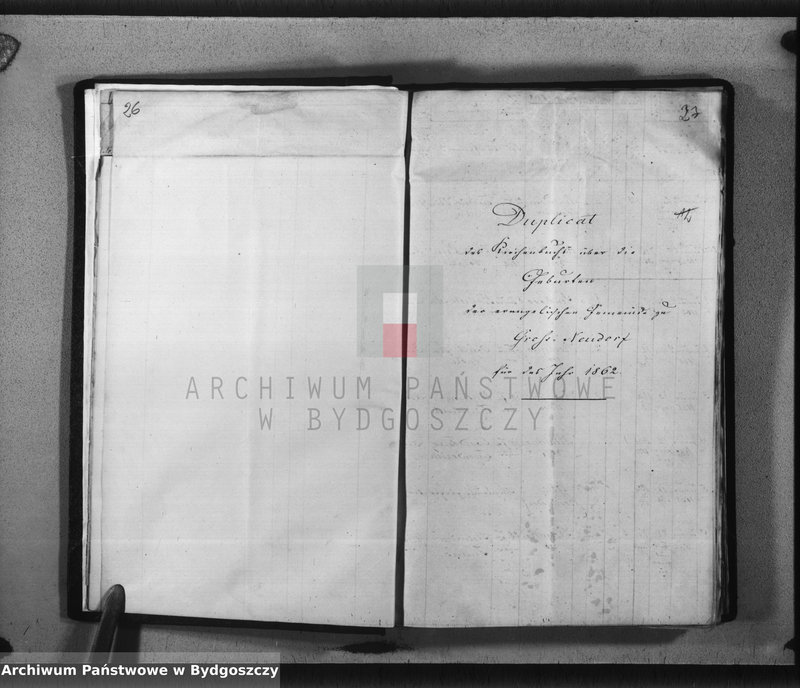 26
27
Duplicat
des Kirchenbuchs über die
Geburten
der evangelischen Gemeinde zu
Gross-Neudorf
für das Jahr 1862.
ARCHIWUM PAŃSTWOWE
W BYDGOSZCZY
Archiwum Państwowe w Bydgoszczy